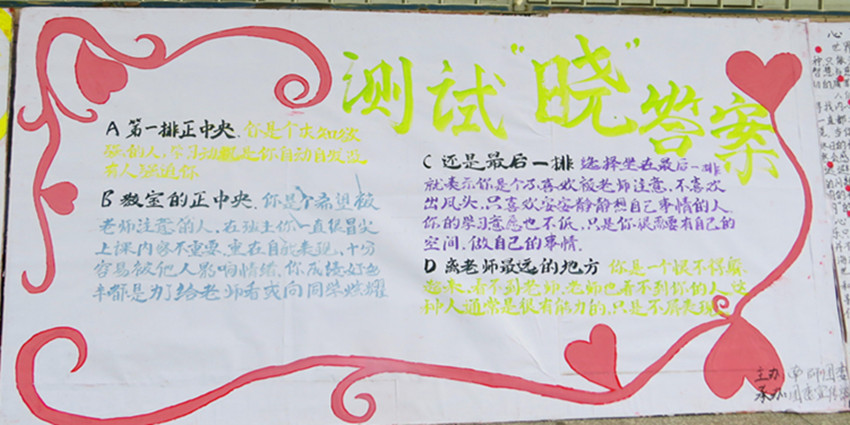 测试“晓”答案
A 第一排正中央. 你是个求知欲
强的人,学习动机处你自动自发没
有人强迫你
B 教室的正中央. 你是个希望被
老师注意的人,在班上你一直很冒尖
上课内容不重要,重在自我表现,十分
容易被他人影响情绪.你成绩好
都是为了给老师看或向同学炫耀
C 还是最后一排 选择坐在最后一排
就表示你是个不喜欢被老师注意,不喜欢
出风头,只喜欢安安静静想自己事情的人
你的学习意愿也不低,只是你很需要有自己的
空间,做自己的事情.
D 离老师最远的地方 你是一个恨不得躲
起来,看不到老师,老师也看不到你的人,这
种人通常是很有能力的,只是不屑表现
主办 团委
承办 团委宣传